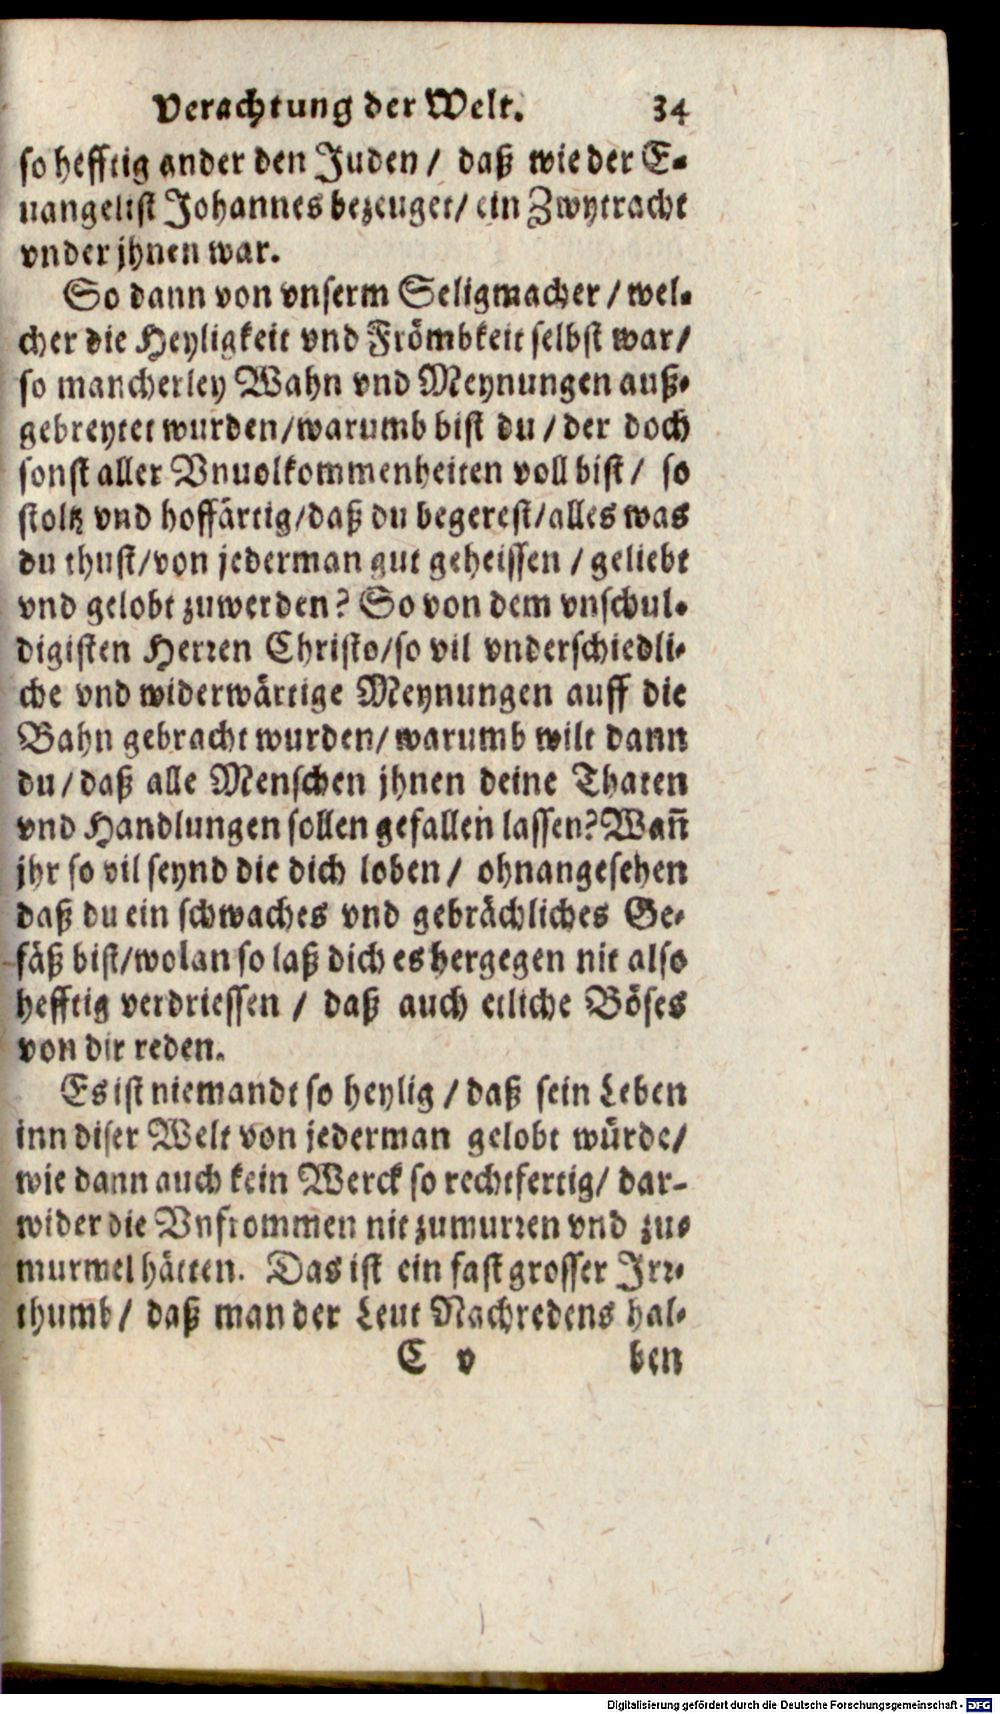 Verachtung der Welt. 34
so hefftig ander den Juden / daß wie der E-
uangelist Johannes bezeuget / ein Zwytracht
vnder jhnen war.
So dann von vnserm Seligmacher / wel-
cher die Heyligkeit vnd Frömbkeit selbst war /
so mancherley Wahn vnd Meynungen auß-
gebreytet wurden / warumb bist du / der doch
sonst aller Vnuolkommenheiten voll bist / so
stoltz vnd hoffärtig / daß du begerest / alles was
du thust / von jederman gut geheissen / geliebt
vnd gelobt zuwerden? So von dem vnschul-
digisten Herren Christo / so vil vnderschiedli-
che vnd widerwärtige Meynungen auff die
Bahn gebracht wurden / warumb wilt dann
du / daß alle Menschen jhnen deine Thaten
vnd Handlungen sollen gefallen lassen? Wañ
jhr so vil seynd die dich loben / ohnangesehen
daß du ein schwaches vnd gebrächliches Ge-
fäß bist / wolan so laß dich es hergegen nit also
hefftig verdriessen / daß auch etliche Böses
von dir reden.
Es ist niemandt so heylig / daß sein Leben
inn diser Welt von jederman gelobt würde /
wie dann auch kein Werck so rechtfertig / dar-
wider die Vnfrommen nit zumurren vnd zu-
murmel hätten. Das ist ein fast grosser Irr-
thumb / daß man der Leut Nachredens hal-
C v ben
Digitalisierung gefördert durch die Deutsche Forschungsgemeinschaft - DFG